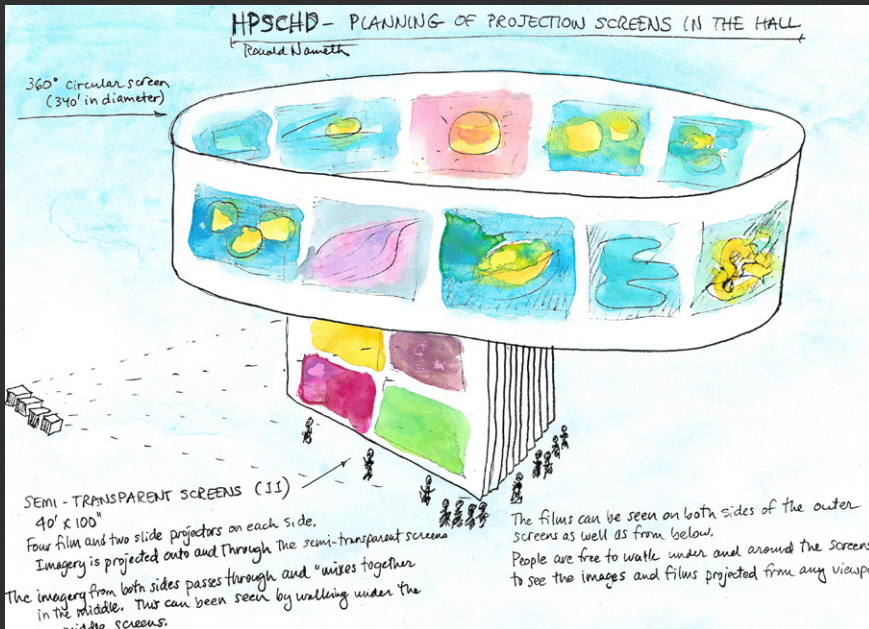 HPSCHD - PLANNING OF PROJECTION SCREENS IN THE HALL
Ronald Nameth
360° circular screen
(340' in diameter)
SEMI-TRANSPARENT SCREENS (II)
40' x 100"
Four film and two slide projectors on each side.
Imagery is projected onto and through the semi-transparent screens
The imagery from both sides passes through and "mixes together
in the middle. This can been seen by walking under the
middle screens.
The films can be seen on both sides of the outer
screens as well as from below.
People are free to walk under and around the screens
to see the images and films projected from any